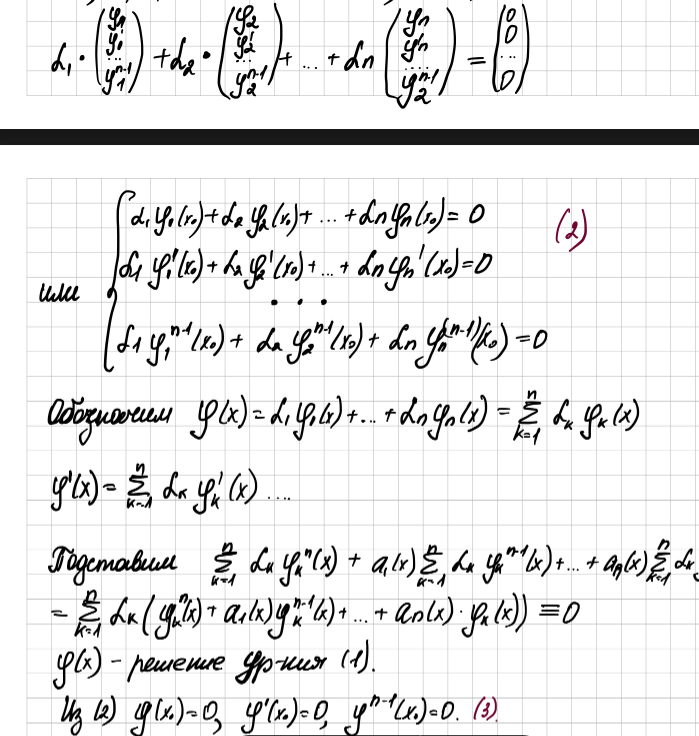 α₁·(φ₁ φ₁' ... φ₁ⁿ⁻¹) + α₂·(φ₂ φ₂' ... φ₂ⁿ⁻¹) + ... + αn (φn φ'n .... φ₂ⁿ⁻¹) = (0 0 ... 0)
α₁φ₁(x₀)+α₂φ₂(x₀)+ ... +αnφn(x₀)= 0 (2)
или α₁φ₁'(x₀)+α₂φ₂'(x₀)+...+αnφn'(x₀)=0
. . .
α₁φ₁ⁿ⁻¹(x₀)+ α₂φ₂ⁿ⁻¹(x₀)+ αnφn⁽ⁿ⁻¹⁾(x₀) =0
Обозначим φ(x)=α₁φ₁(x)+...+αnφn(x) = Σₖ₌₁ⁿ αₖφₖ(x)
φ'(x)= Σₖ₌₁ⁿ αₖφₖ'(x) ....
Подставим Σₖ₌₁ⁿ αₖφₖⁿ(x) + a₁(x)Σₖ₌₁ⁿ αₖφₖⁿ⁻¹(x)+...+an(x)Σₖ₌₁ⁿ αₖ
= Σₖ₌₁ⁿ αₖ(φₖⁿ(x)+a₁(x)φₖⁿ⁻¹(x)+...+an(x)·φₖ(x)) ≡0
φ(x) - решение ур-ния (1).
Из (2) φ(x₀)=0, φ'(x₀)=0, φⁿ⁻¹(x₀)=0. (3)